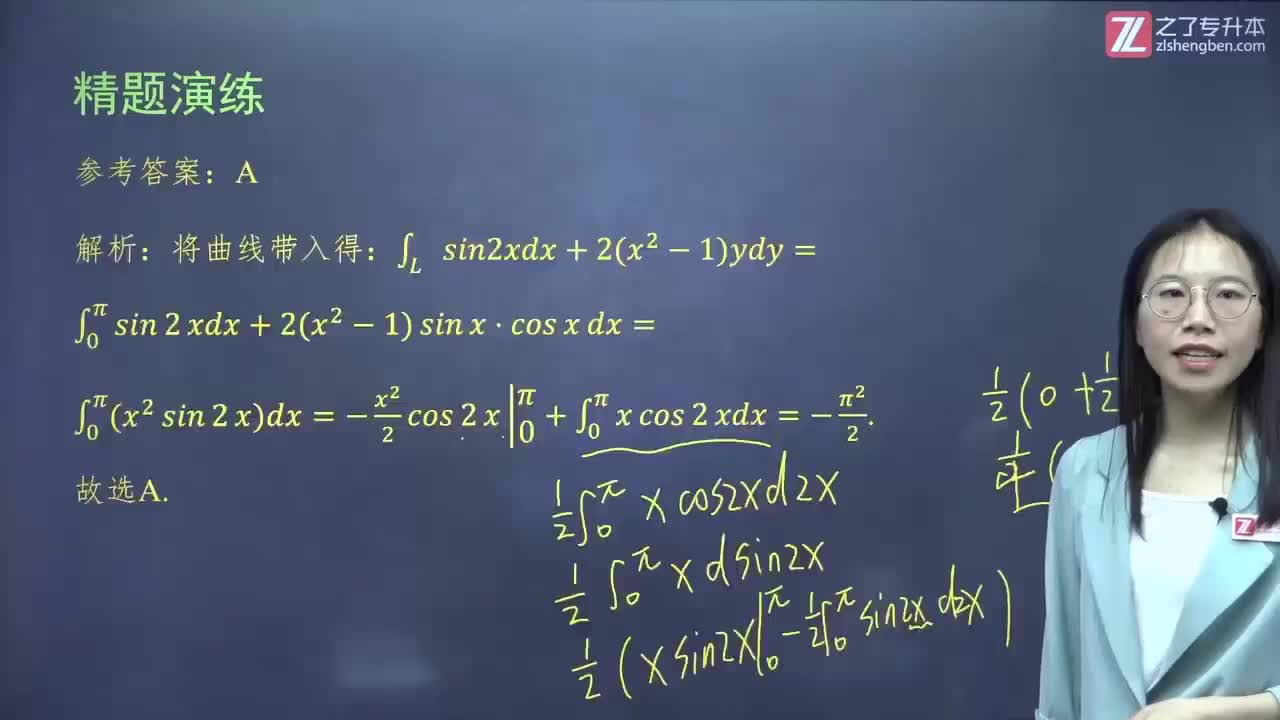 之了专升本
zlshengben.com
精题演练
参考答案：A
解析：将曲线带入得：∫_L sin2xdx + 2(x² − 1)ydy =
∫₀^π sin 2 xdx + 2(x² − 1) sin x · cos x dx =
∫₀^π (x² sin 2 x)dx = −x²/2 cos 2 x |₀^π + ∫₀^π x cos 2 xdx = −π²/2.
故选A.
1/2 ∫₀^π x cos2x d2x
1/2 ∫₀^π x d sin2x
1/2 ( x sin2x |₀^π − 1/2 ∫₀^π sin2x d2x )
1/2 ( 0 + 1/2